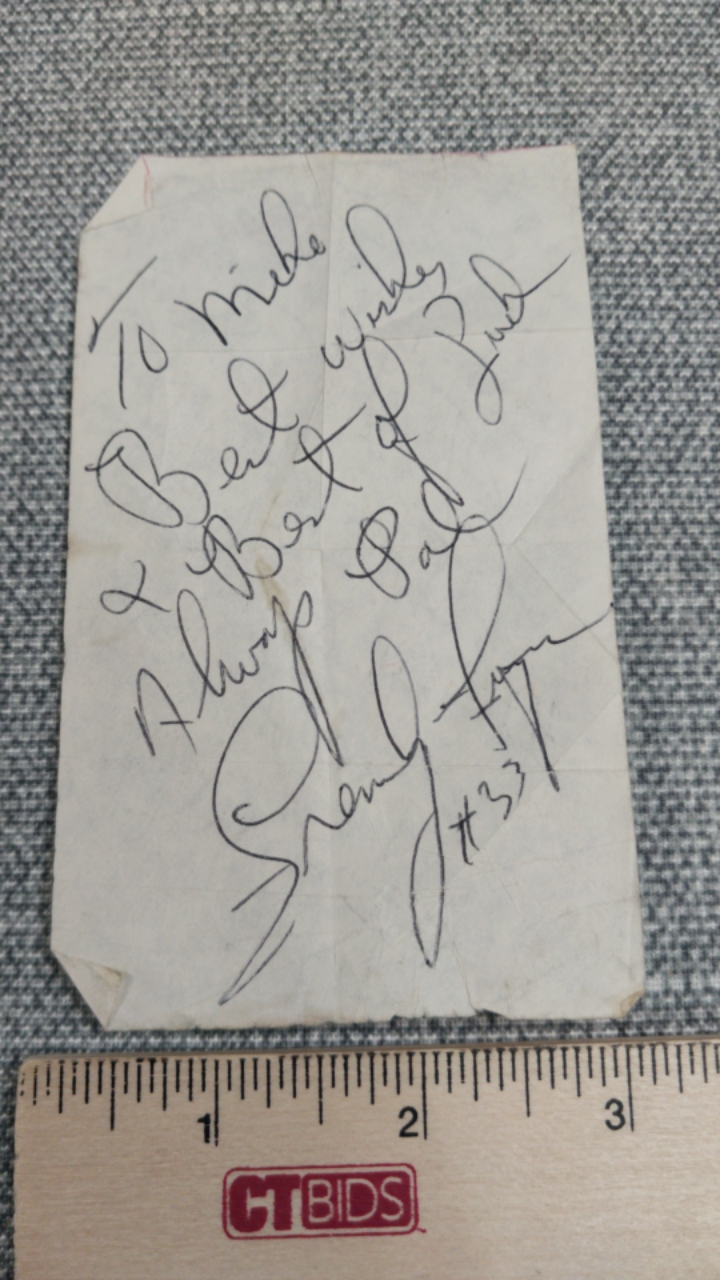 To Mike
Best wishes
& Best of Luck
Always Pal
#33
1 2 3
CTBIDS